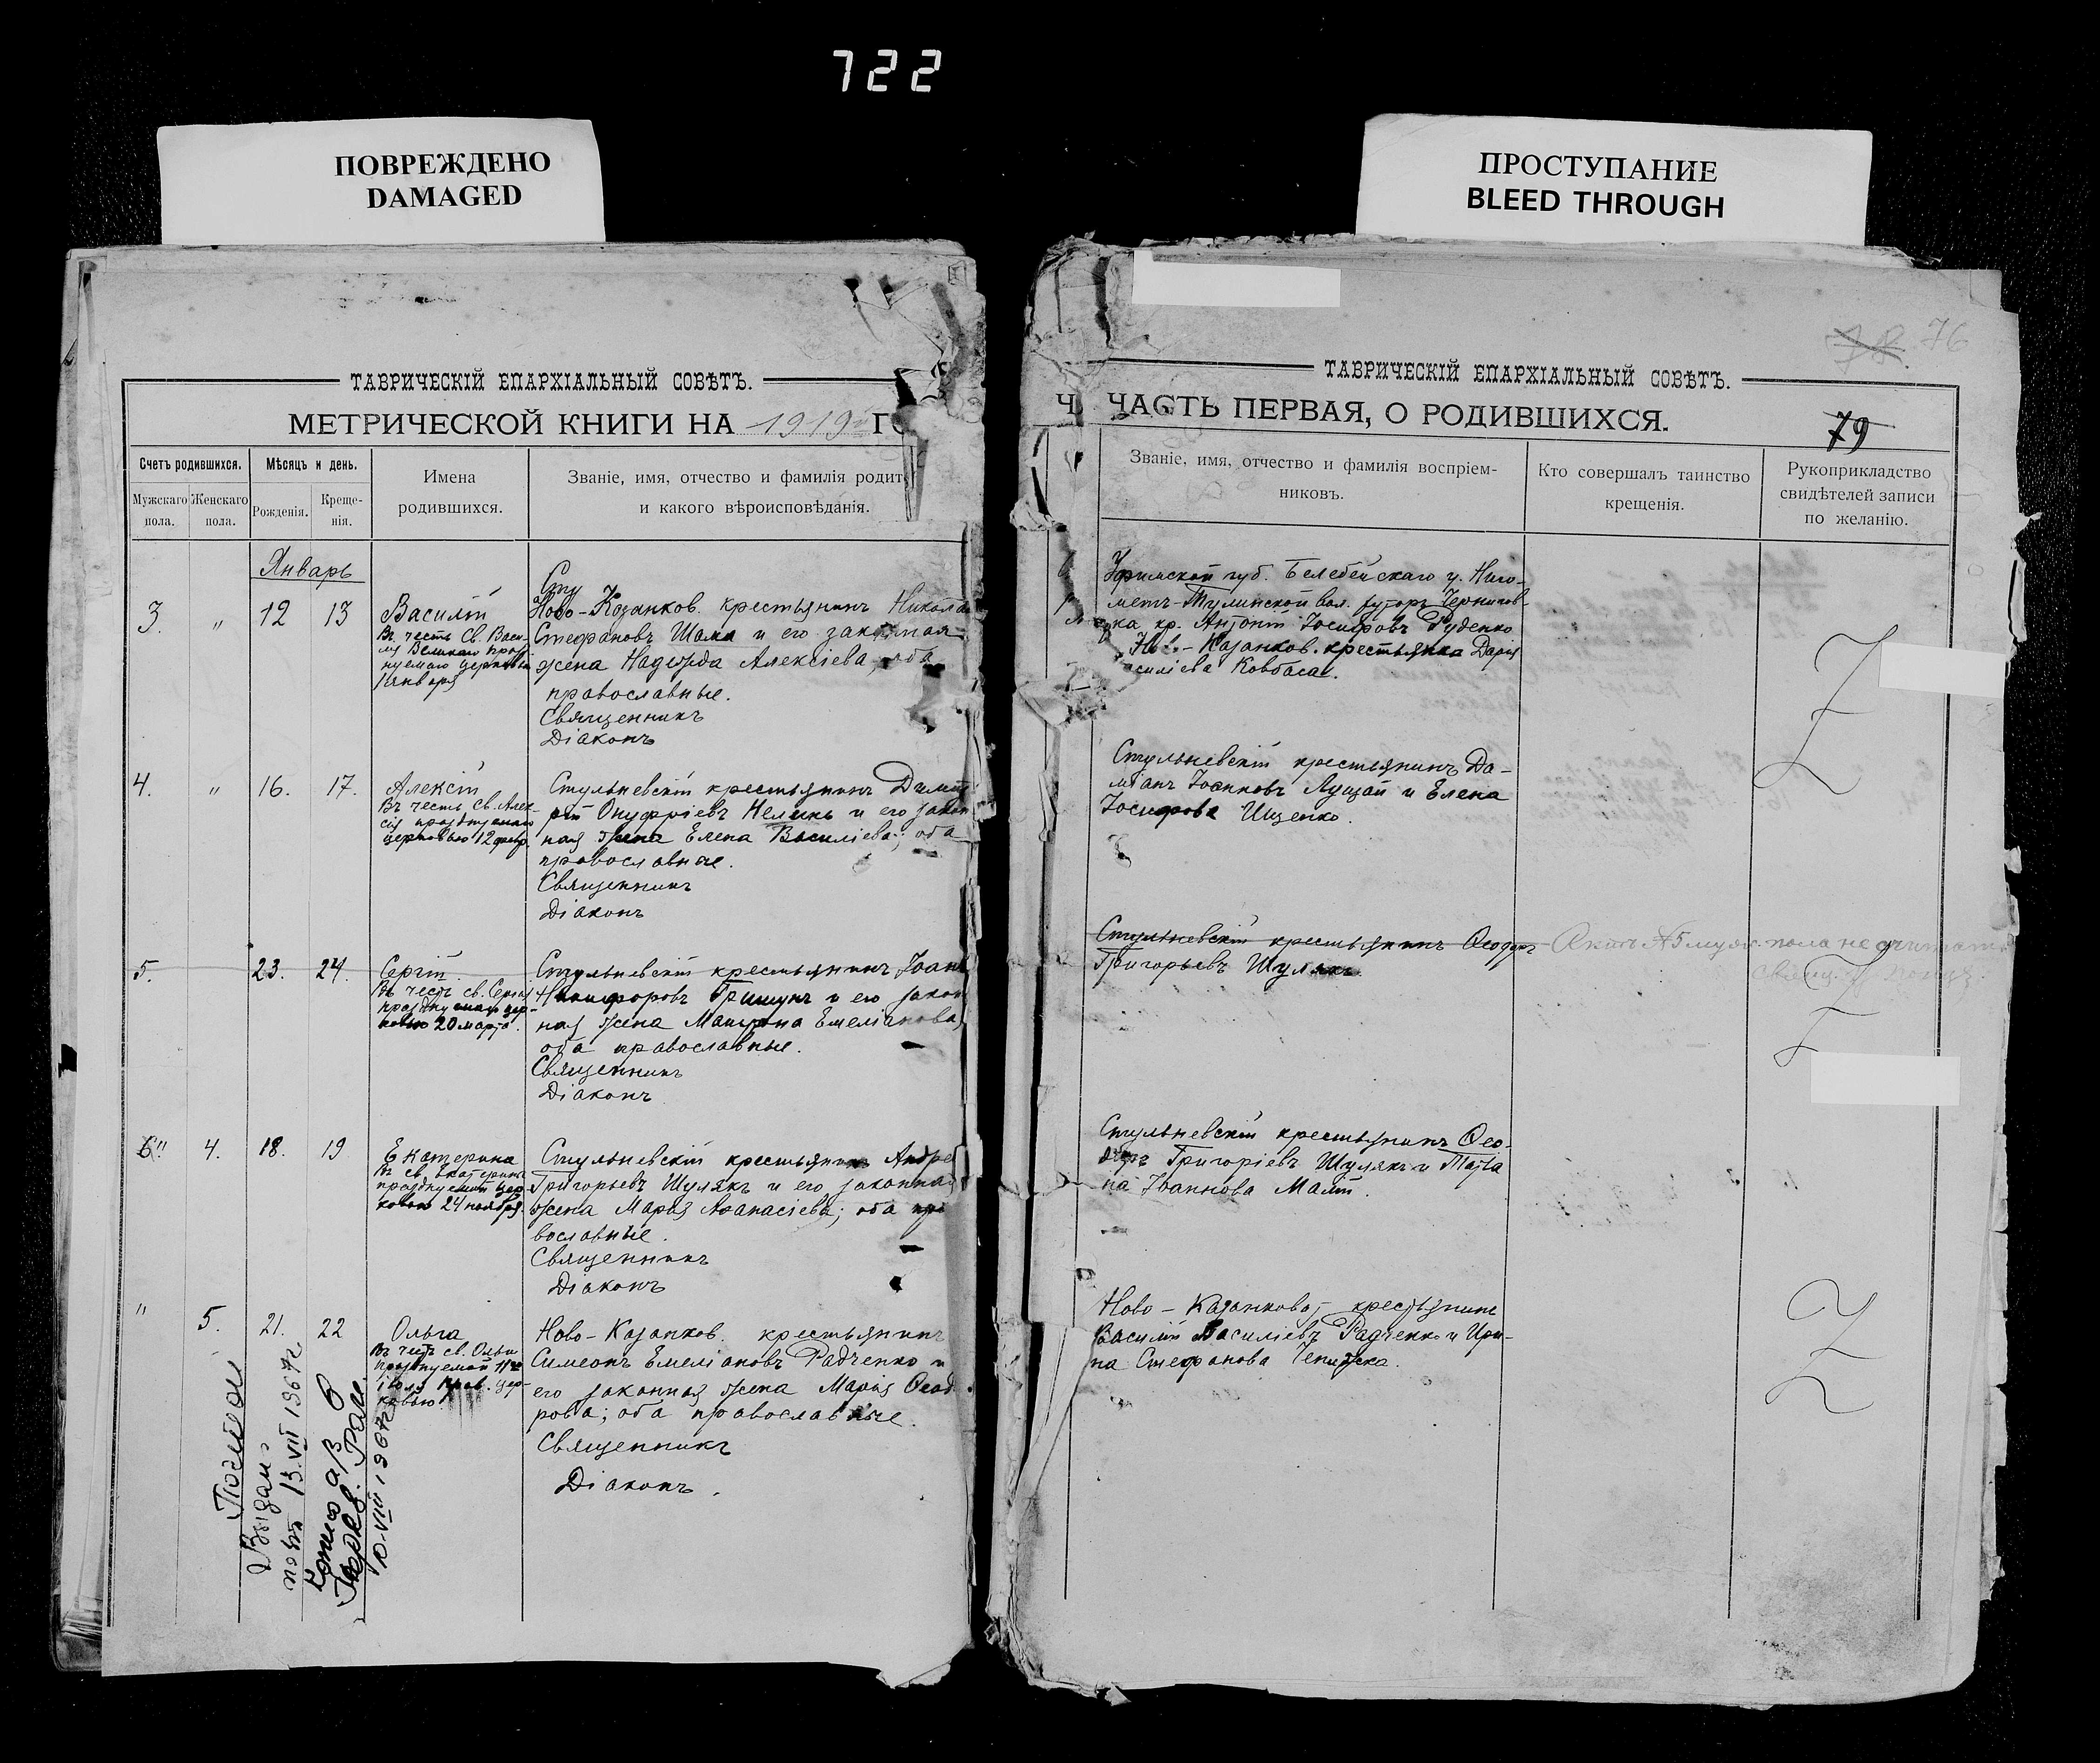 722
ПОВРЕЖДЕНО
DAMAGED
ПРОСТУПАНИЕ
BLEED THROUGH
ТАВРИЧЕСКІЙ ЕПАРХІАЛЬНЫЙ СОВѢТЪ.
МЕТРИЧЕСКОЙ КНИГИ НА 1919й ГО
Счетъ родившихся.
Мѣсяцъ и день.
Имена
родившихся.
Званіе, имя, отчество и фамилія родит
и какого вѣроисповѣданія.
Мужскаго
пола.
Женскаго
пола.
Рожденія.
Креще-
нія.
Январь
3. " 12 13 Василій
Въ честь Св. Васи-
лія Великаго празд
нуемаго церковью
1 января
Ново-Казанков. крестьянинъ Никола
Стефановъ Шама и его законная
жена Надежда Алексіева, оба
православные.
Священникъ
Діаконъ
4. " 16. 17. Алексій
Въ честь св. Алек
сія празднуемаго
церковью 12 февр.
Стульневскій крестьянинъ Димит
рій Онуфріевъ и его закон
ная жена Елена Василіева; оба
православные.
Священникъ
Діаконъ
5. 23. 24. Сергій
Въ честь св. Сергія
празднуемаго цер-
ковью 20 марта.
Стульневскій крестьянинъ Іоан
Никифоровъ Гришунъ и его закон
ная жена Матрона Емеліанова,
оба православные.
Священникъ
Діаконъ
6" 4. 18. 19 Екатерина
Въ св. Екатерины
празднуемой цер-
ковью 24 ноября.
Стульневскій крестьянинъ Андре
Григорьевъ Шулякъ и его законная
жена Марія Аѳанасіева; оба пра
вославные.
Священникъ
Діаконъ
" 5. 21. 22 Ольга
Въ честь св. Ольги
празднуемой 11го
іюля Прав. цер-
ковью.
Ново-Казанков. крестьянинъ
Симеонъ Емеліановъ Радченко и
его законная жена Марія Ѳеод
рова; оба православные.
Священникъ
Діаконъ.
13.VII 1967г
10-VIII 1967г
76
ТАВРИЧЕСКІЙ ЕПАРХІАЛЬНЫЙ СОВѢТЪ.
ЧАСТЬ ПЕРВАЯ, О РОДИВШИХСЯ.
79
Званіе, имя, отчество и фамилія воспріем-
никовъ.
Кто совершалъ таинство
крещенія.
Рукоприкладство
свидѣтелей записи
по желанію.
Уфимской губ. Белебейскаго у. Ниго-
метъ-Тулинской вол. хуторъ Чернигов-
ка кр. Антоній Іосифовъ Руденко
Нов.-Казанков. крестьянка Дарія
асиліева Ковбаса.
Стульневскій крестьянинъ Да-
міанъ Іосифовъ Лущай и Елена
Іосифова Ищенко.
Стульневскій крестьянинъ Ѳеодоръ
Григорьевъ Шулякъ
Актъ №5 муж. пола не считать
Стульневскій крестьянинъ Ѳео-
доръ Григоріевъ Шулякъ и Татіа
на Іоаннова Малій.
Ново-Казанков. крестьянинъ
Василій Василіевъ Радченко и Ири-
на Стефанова